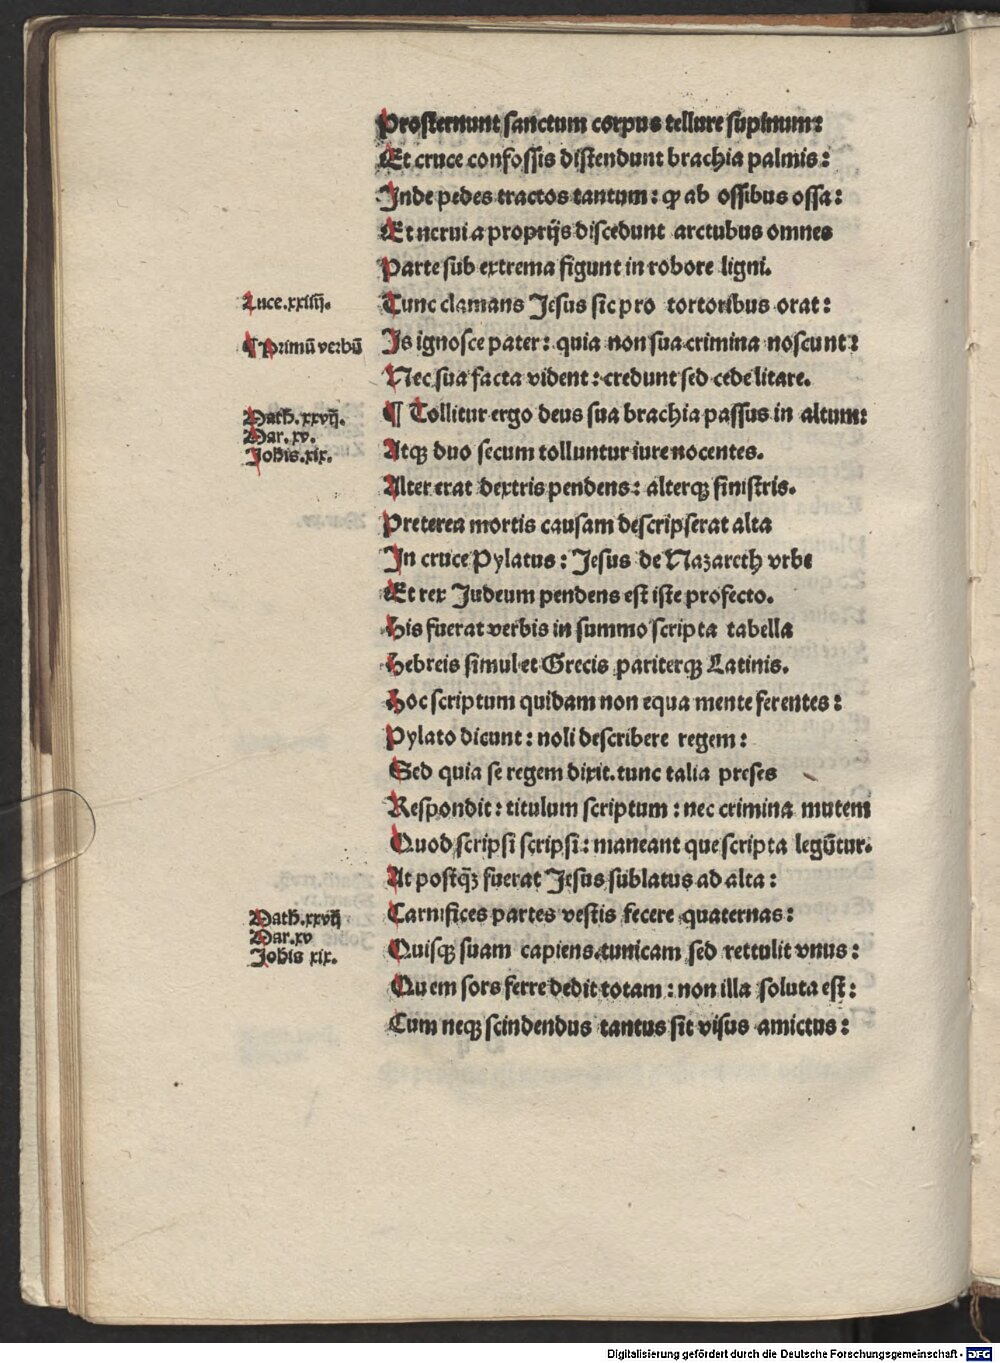 Prosternunt sanctum corpus tellure supinum:
Et cruce confossis distendunt brachia palmis:
Inde pedes tractos tantum: ꝙ ab ossibus ossa:
Et nerui a proprijs discedunt arctubus omnes
Parte sub extrema figunt in robore ligni.
Luce.xxiiij.
Tunc clamans Jesus sic pro tortoribus orat:
¶ Primū verbū
Is ignosce pater: quia non sua crimina noscunt:
Nec sua facta vident: credunt sed cede litare.
Math. xxvij.
Mar. xv.
Johis.xix.
¶ Tollitur ergo deus sua brachia passus in altum:
Atqꝫ duo secum tolluntur iure nocentes.
Alter erat dextris pendens: alterqꝫ sinistris.
Preterea mortis causam descripserat alta
In cruce Pylatus: Jesus de Nazareth vrbe
Et rex Judeum pendens est iste profecto.
His fuerat verbis in summo scripta tabella
Hebreis simul et Grecis pariterqꝫ Latinis.
Hoc scriptum quidam non equa mente ferentes:
Pylato dicunt: noli describere regem:
Sed quia se regem dixit. tunc talia preses
Respondit: titulum scriptum: nec crimina mutem
Quod scripsi scripsi: maneant que scripta legūtur.
At postq̄ꝫ fuerat Jesus sublatus ad alta:
Math. xxvij
Mar.xv
Johis xix.
Carnifices partes vestis fecere quaternas:
Quisqꝫ suam capiens.tunicam sed rettulit vnus:
Quem sors ferre dedit totam: non illa soluta est:
Cum neqꝫ scindendus tantus sit visus amictus:
Digitalisierung gefördert durch die Deutsche Forschungsgemeinschaft - DFG